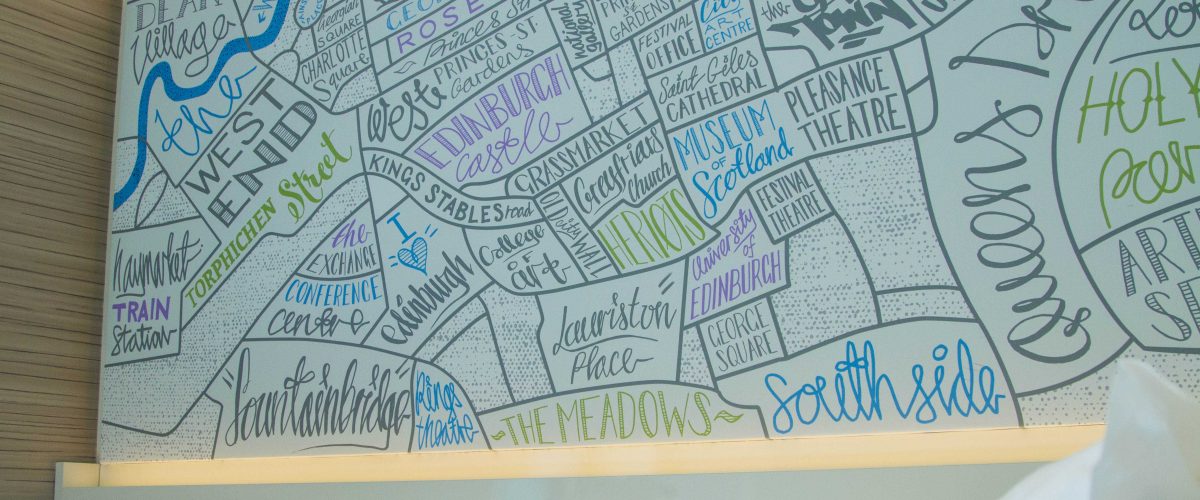 DEAN
Village
the
WEST
END
TORPHICHEN Street
Haymarket
TRAIN
Station
Georgian
SQUARE
CHARLOTTE
Square
ROSE
Princes St
West PRINCES ST
Gardens
EDINBURGH
Castle
KINGS STABLES road
the
EXCHANGE
CONFERENCE
centre
I
edinburgh
national
gallery
GARDENS
FESTIVAL
OFFICE
City
ART
CENTRE
the
TOWN
Saint Giles
CATHEDRAL
GRASSMARKET
Greyfriars
Church
HERIOTS
OLD city WALL
College
OF
art
MUSEUM
OF
Scotland
PLEASANCE
THEATRE
FESTIVAL
THEATRE
University
of
EDINBURGH
GEORGE
SQUARE
Lauriston
Place
fountainbridge
Kings
theatre
THE MEADOWS
South side
Queens Dr
HOLY
par
ART
SE